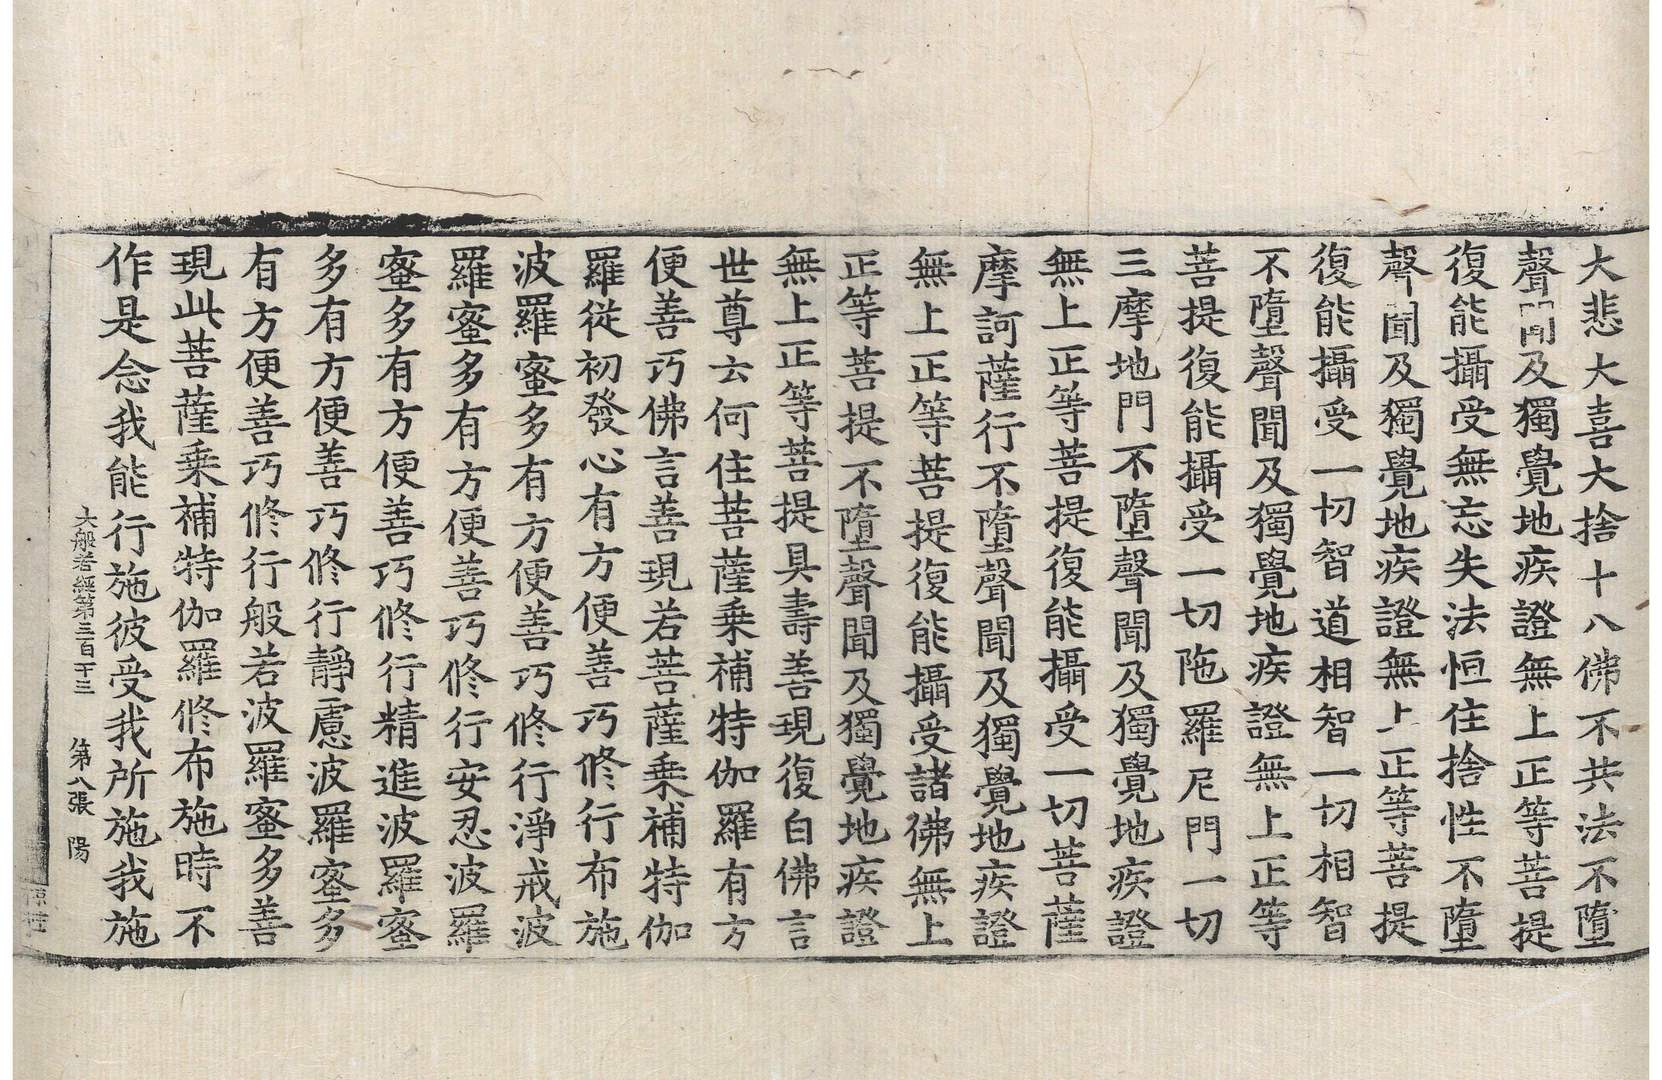 大悲大喜大捨十八佛不共法不墮
聲聞及獨覺地疾證無上正等菩提
復能攝受無忘失法恒住捨性不墮
聲聞及獨覺地疾證無上正等菩提
復能攝受一切智道相智一切相智
不墮聲聞及獨覺地疾證無上正等
菩提復能攝受一切陁羅尼門一切
三摩地門不墮聲聞及獨覺地疾證
無上正等菩提復能攝受一切菩薩
摩訶薩行不墮聲聞及獨覺地疾證
無上正等菩提復能攝受諸佛無上
正等菩提不墮聲聞及獨覺地疾證
無上正等菩提具壽善現復白佛言
世尊云何住菩薩乗補特伽羅有方
便善巧佛言善現若菩薩乗補特伽
羅從初發心有方便善巧修行布施
波羅蜜多有方便善巧修行淨戒波
羅蜜多有方便善巧修行安忍波羅
蜜多有方便善巧修行精進波羅蜜
多有方便善巧修行靜慮波羅蜜多
有方便善巧修行般若波羅蜜多善
現此菩薩乗補特伽羅修布施時不
作是念我能行施彼受我所施我施
大般若經第三百一十三 第八張 陽